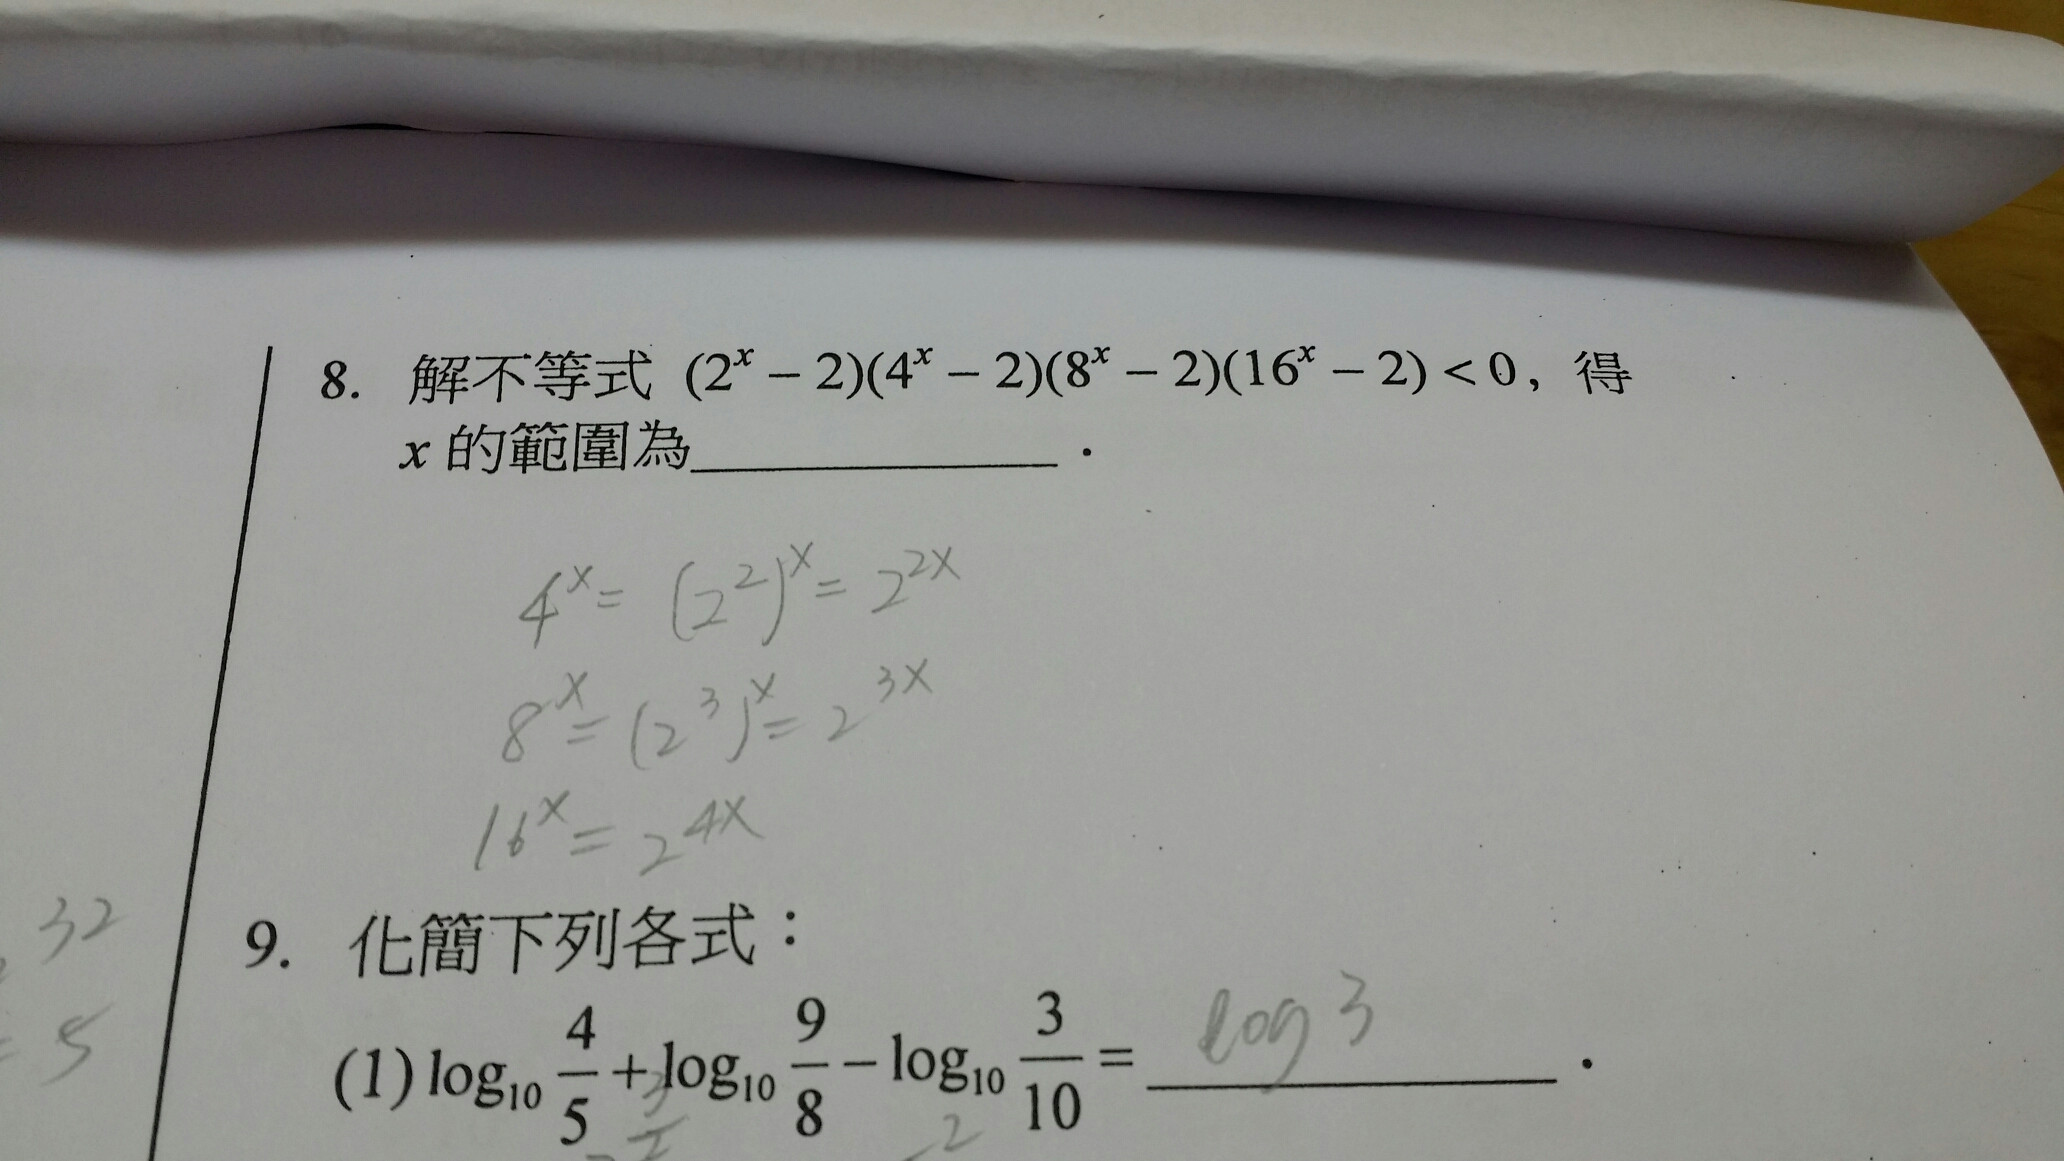 8. 解不等式 (2ˣ − 2)(4ˣ − 2)(8ˣ − 2)(16ˣ − 2) < 0, 得
x 的範圍為__________ .
4ˣ = (2²)ˣ = 2²ˣ
8ˣ = (2³)ˣ = 2³ˣ
16ˣ = 2⁴ˣ
32
= 5
9. 化簡下列各式：
(1) log₁₀ 4/5 + log₁₀ 9/8 − log₁₀ 3/10 = log 3 .
2